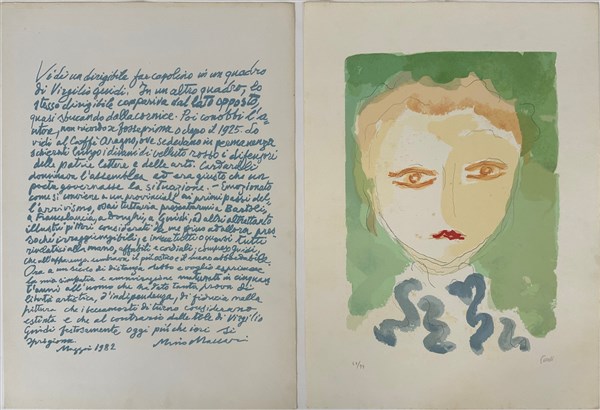 Vidi un dirigibile far capolino in un quadro
di Virgilio Guidi. In un altro quadro, lo
stesso dirigibile compariva dal lato opposto,
quasi sbucando dalla cornice. Poi conobbi l'au
tore, non ricordo se prima o dopo il 1925. Lo
vidi al Caffè Aragno, ove sedevano in permanenza
schierati lungo i divani di velluto rosso i difensori
delle patrie lettere e delle arti. Cardarelli
dominava l'assemblea ed era giusto che un
poeta governasse la situazione. - Emozionato
come si conviene a un provinciale ai primi passi del
l'arrivismo, osai tuttavia presentarmi a Bartoli,
a Francalancia, a Donghi, a Guidi, ed altri altrettanto
illustri pittori considerati da me fino ad allora pres
sochè irraggiungibili; e invece tutti o quasi tutti
rivelatisi alla mano, affabili e cordiali, compreso Guidi,
che all'apparenza sembrava il più
Ora a un secolo di distanza, debbo e voglio esprimere
la mia simpatia e ammirazione maturate in cinquan
t'anni all'uomo che ha dato tanta prova di
libertà artistica, d'indipendenza, di fiducia nella
pittura che i beccamorti di turno consideravano
estinta e che al contrario dalle tele di Virgilio
Guidi festosamente, oggi più che ieri si
sprigiona.
Maggio 1982 Mino Maccari
Guidi